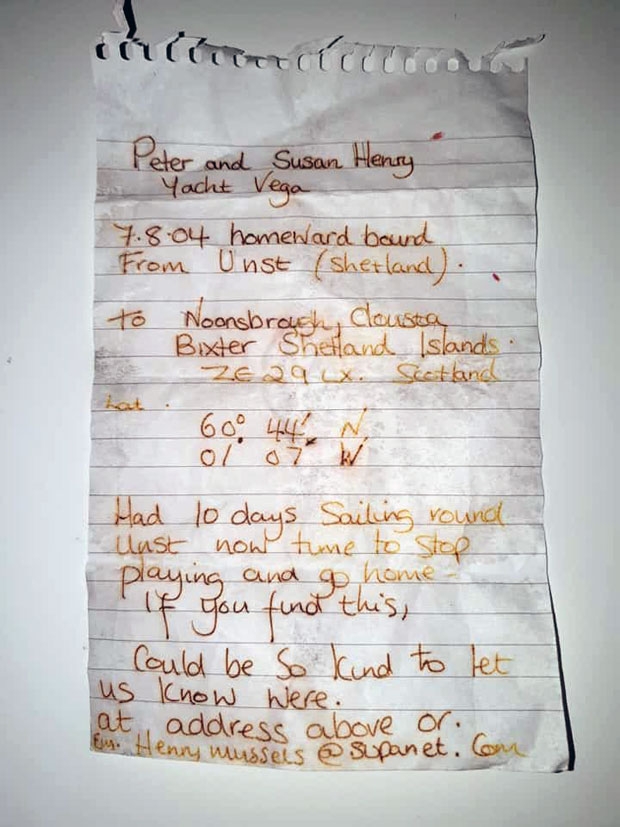 Peter and Susan Henry
Yacht Vega
7.8.04 homeward bound
From Unst (Shetland).
to Noonsbrough, Clousta
Bixter Shetland Islands.
ZE29LX. Scotland
Lat.
60° 44' N
01 07 W
Had 10 days Sailing round
Unst now time to stop
playing and go home -
If you find this,
Could be so kind to let
us know were.
at address above or.
Em. Henry mussels @ supanet. Com